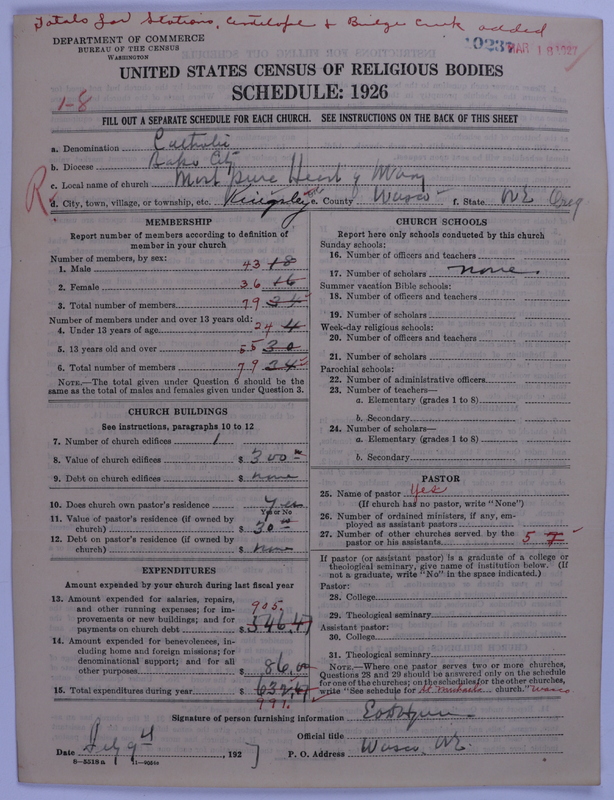 Totals for Stations, Antelope & Bridge Creek added
DEPARTMENT OF COMMERCE
BUREAU OF THE CENSUS
WASHINGTON
10237 MAR 18 1927
UNITED STATES CENSUS OF RELIGIOUS BODIES
SCHEDULE: 1926
1-8
FILL OUT A SEPARATE SCHEDULE FOR EACH CHURCH. SEE INSTRUCTIONS ON THE BACK OF THIS SHEET
a. Denomination Catholic
b. Diocese Baker City
c. Local name of church Most Pure Heart of Mary
R
d. City, town, village, or township, etc. Kingsley e. County Wasco f. State Oreg
MEMBERSHIP
Report number of members according to definition of
member in your church
Number of members, by sex:
1. Male 43 18
2. Female 36 16
3. Total number of members 79 34
Number of members under and over 13 years old:
4. Under 13 years of age 24 4
5. 13 years old and over 55 30
6. Total number of members 79 34
NOTE.—The total given under Question 6 should be the
same as the total of males and females given under Question 3.
CHURCH BUILDINGS
See instructions, paragraphs 10 to 12
7. Number of church edifices 1
8. Value of church edifices $ 300.00
9. Debt on church edifices $ none
10. Does church own pastor's residence Yes
Yes or No
11. Value of pastor's residence (if owned by
church) $ 30.00
12. Debt on pastor's residence (if owned by
church) $ none
EXPENDITURES
Amount expended by your church during last fiscal year
13. Amount expended for salaries, repairs,
and other running expenses; for im-
provements or new buildings; and for
payments on church debt $ 905. 546.47
14. Amount expended for benevolences, in-
cluding home and foreign missions; for
denominational support; and for all
other purposes $ 86.00
15. Total expenditures during year $ 632.47
991.
CHURCH SCHOOLS
Report here only schools conducted by this church
Sunday schools:
16. Number of officers and teachers
17. Number of scholars none.
Summer vacation Bible schools:
18. Number of officers and teachers
19. Number of scholars
Week-day religious schools:
20. Number of officers and teachers
21. Number of scholars
Parochial schools:
22. Number of administrative officers
23. Number of teachers—
a. Elementary (grades 1 to 8)
b. Secondary
24. Number of scholars—
a. Elementary (grades 1 to 8)
b. Secondary
PASTOR
25. Name of pastor Yes
(If church has no pastor, write "None")
26. Number of ordained ministers, if any, em-
ployed as assistant pastors
27. Number of other churches served by the
pastor or his assistants 5 7
If pastor (or assistant pastor) is a graduate of a college or
theological seminary, give name of institution below. (If
not a graduate, write "No" in the space indicated.)
Pastor:
28. College
29. Theological seminary
Assistant pastor:
30. College
31. Theological seminary
NOTE.—Where one pastor serves two or more churches,
Questions 28 and 29 should be answered only on the schedule
for one of the churches; on the schedules for the other churches,
write "See schedule for St. Michaels church." Wasco
Signature of person furnishing information
Official title
Date 192 7
P. O. Address Wasco, Ore.
8-5518 a